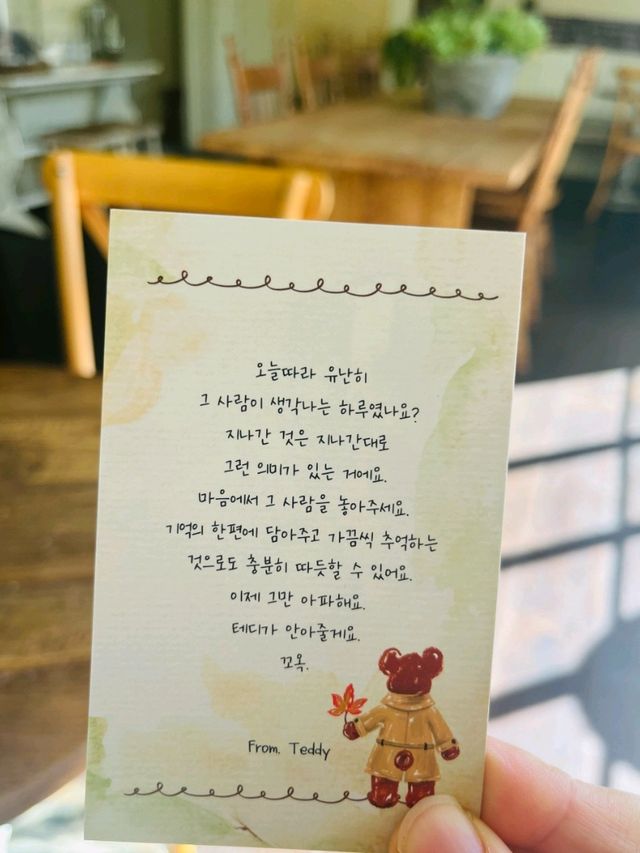 오늘따라 유난히
그 사람이 생각나는 하루였나요?
지나간 것은 지나간대로
그런 의미가 있는 거에요.
마음에서 그 사람을 놓아주세요.
기억의 한편에 담아주고 가끔씩 추억하는
것으로도 충분히 따듯할 수 있어요.
이제 그만 아파해요.
테디가 안아줄게요.
꼬옥.
From. Teddy